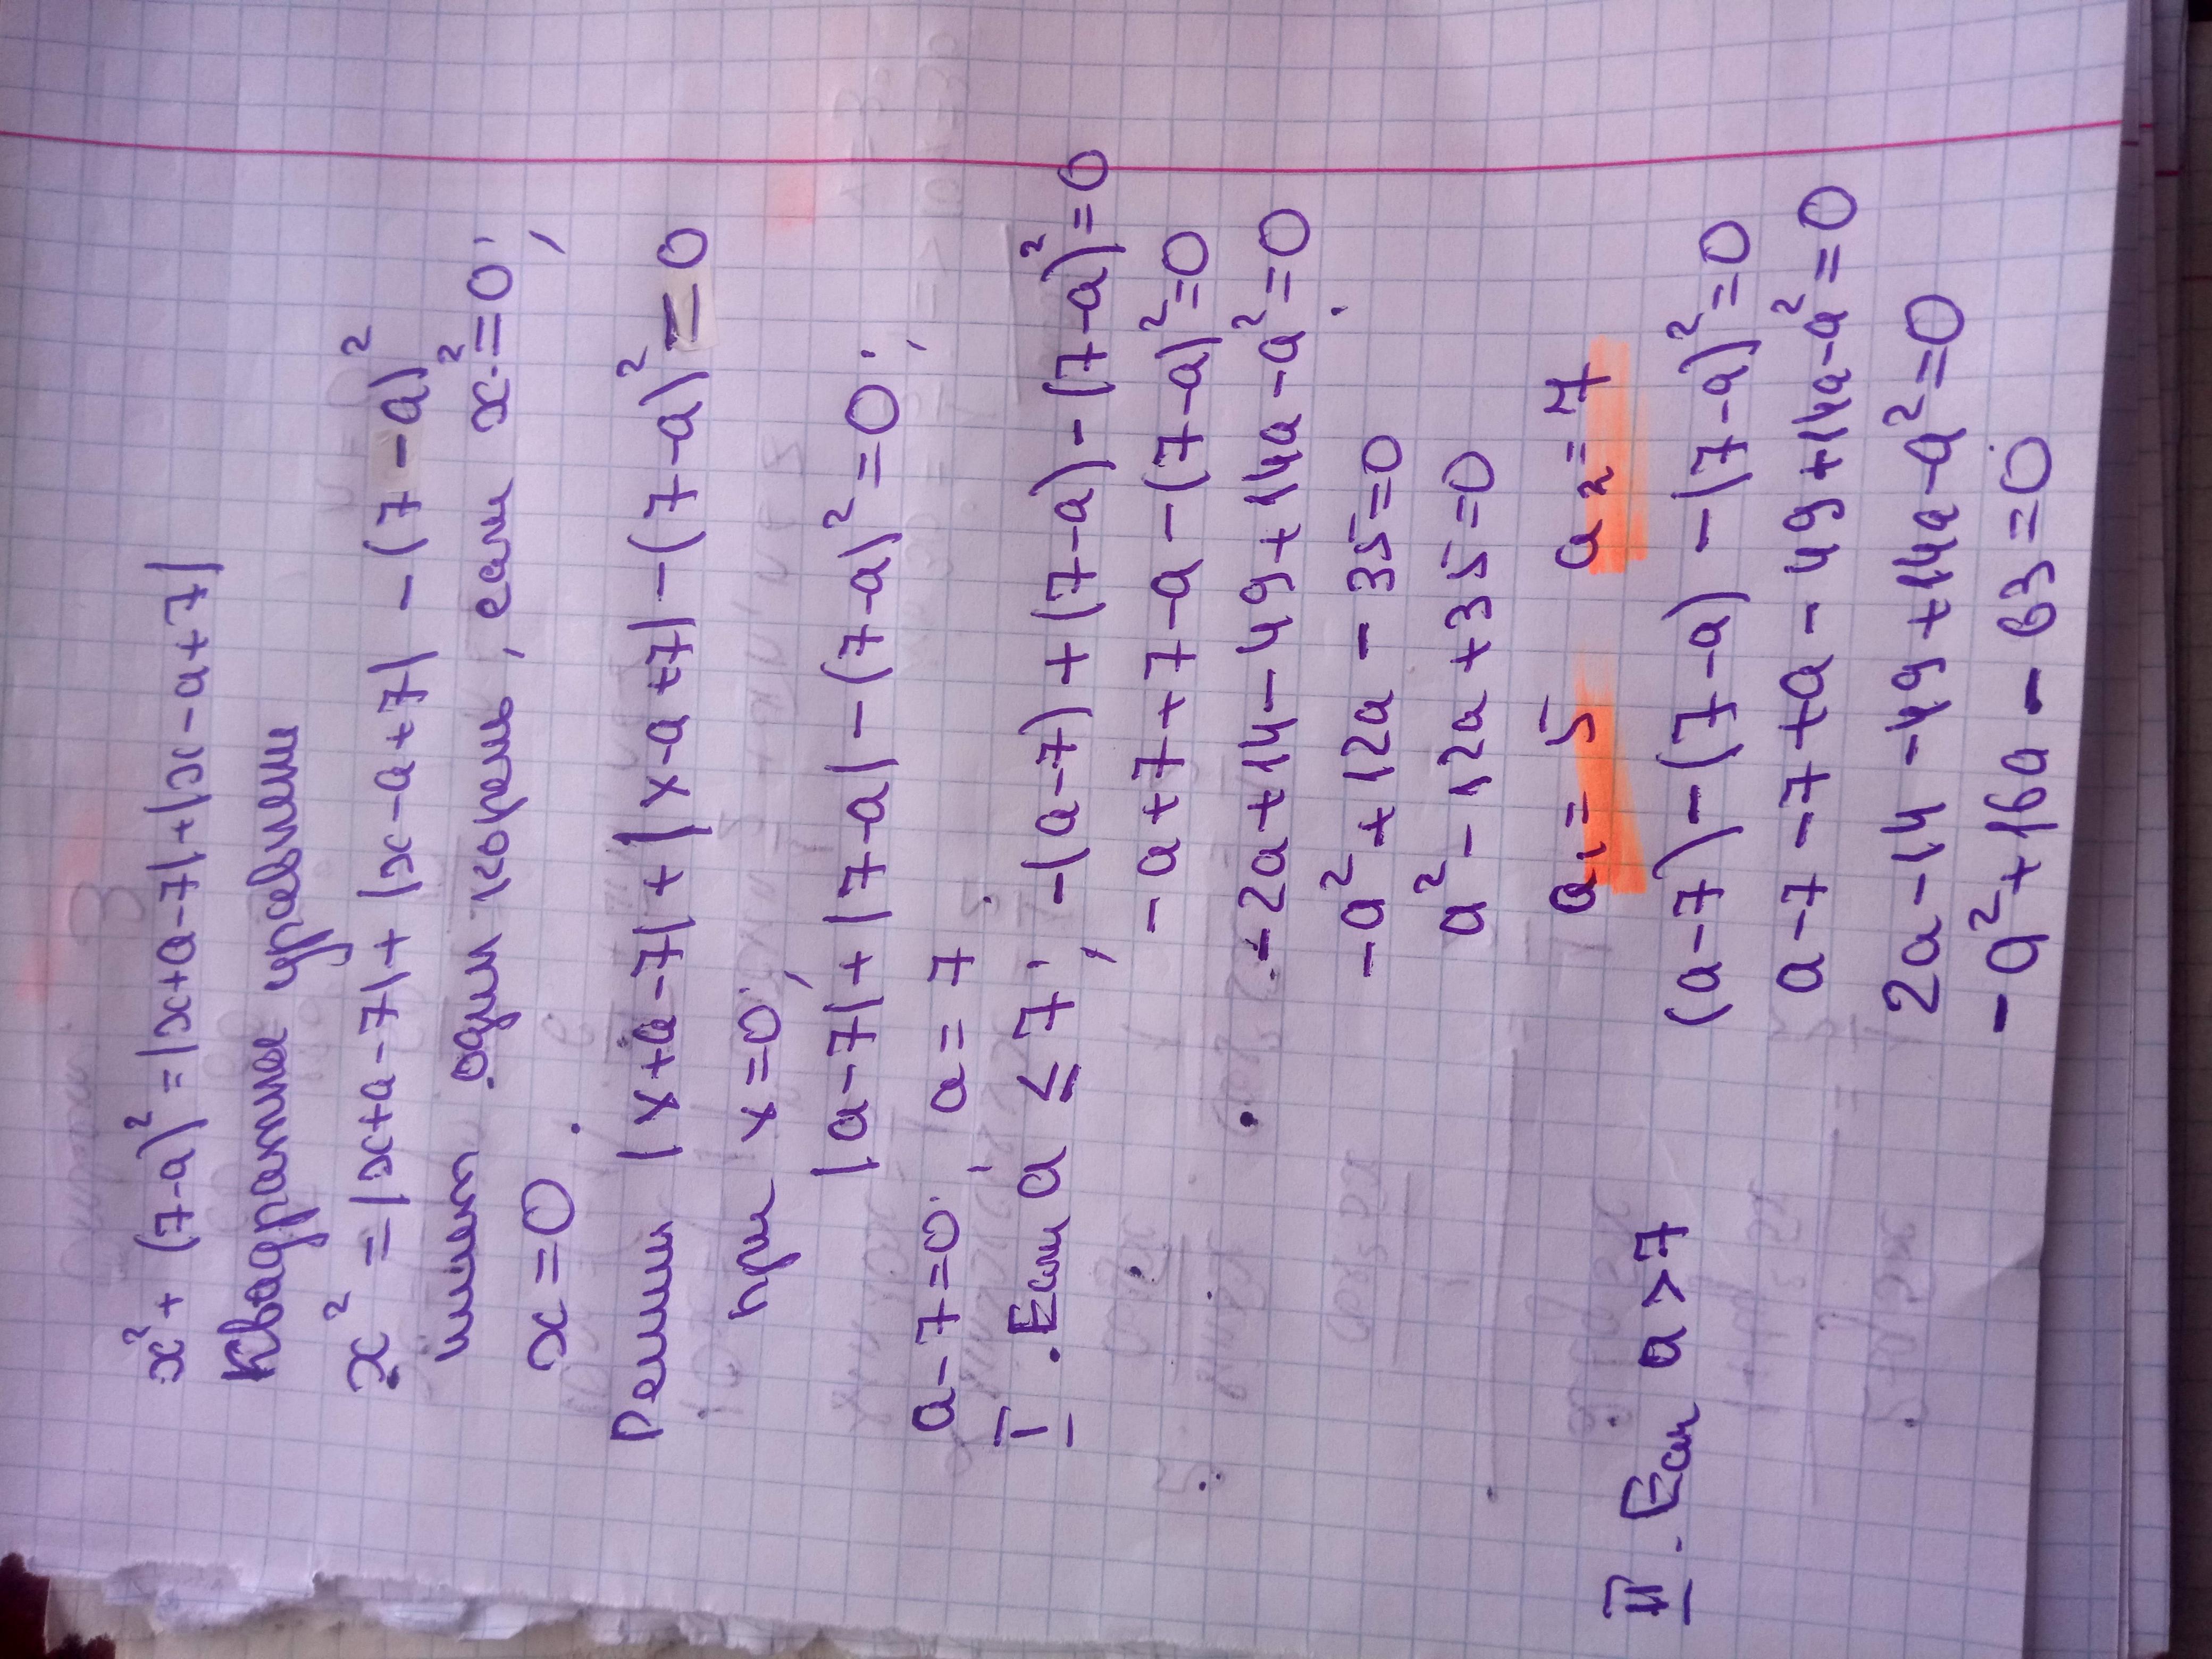 x² + (7-a)² = |x+a-7| + |x-a+7|
Квадратные уравнени
x² = |x+a-7| + |x-a+7| - (7-a)²
имеет один корень, если x² = 0;
x = 0
Решим |x+a-7| + |x-a+7| - (7-a)² = 0
при x=0;
|a-7| + |7-a| - (7-a)² = 0;
a-7=0; a = 7
I. Если a ≤ 7; -(a-7) + (7-a) - (7-a)² = 0
-a+7+7-a-(7-a)²=0
-2a+14-49+14a-a²=0
-a²+12a-35=0
a²-12a+35=0
a₁=5 a₂=7
II. Если a>7 (a-7)-(7-a)-(7-a)²=0
a-7-7+a-49+14a-a²=0
2a-14-49+14a-a²=0
-a²+16a-63=0